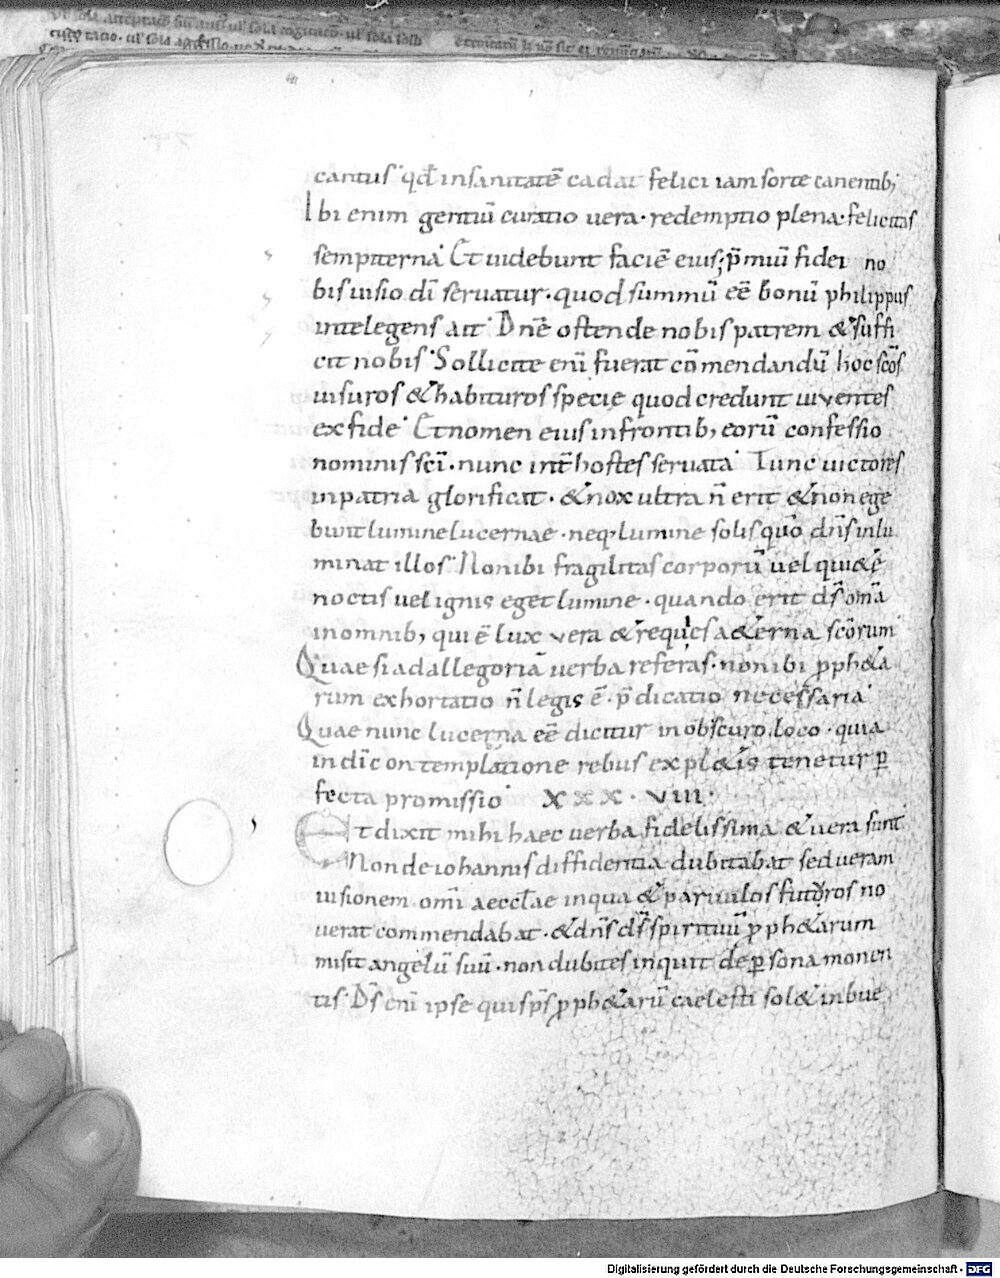 cantus· qd̄ insanitatē cadat felici iam sorte canentib;
Ibi enim gentiū curatio uera· redemptio plena· felicitas
sempiterna· Et uidebunt faciē eius; p̄miū fidei no
bis uisio dī seruatur· quod summū eē bonū philippus
intelegens ait· Dnē ostende nobis patrem & suffi
cit nobis· Sollicite enī fuerat cōmendandū hoc scōs
uisuros & habituros specie quod credunt uiventes
ex fide· Et nomen eius in frontib; eorū confessio
nominis scī· nunc int̄ hostes seruata· Tunc uictores
in patria glorificat· & nox ultra n̄ erit & non ege
bunt lumine lucernae· neq; lumine solis quō dn̄s inlu
minat illos· Non ibi fragilitas corporū uel qui&ē
noctis uel ignis eget lumine· quando erit ds̄ omā
in omnib; qui ē lux vera & requies a&erna scōrum
Quae si ad allegoriā uerba referas· non ibi pph&a
rum exhortatio n̄ legis ē· p̄dicatio necessaria·
Quae nunc lucerna eē dicitur in obscuro loco· quia
in dī contemplatione rebus expl&is tenetur p
fecta promissio· XXX·VIII·
Et dixit mihi haec uerba fidelissima & uera sunt
Non de iohannis diffidentia dubitabat sed ueram
uisionem omī aeccl̄ae in qua & paruulos futuros no
uerat commendabat· & dn̄s ds̄ spirituū pph&arum
misit angelū suū· non dubites inquit de psona monen
tis· Ds̄ enī ipse qui sps̄ pph&arū caelesti sol& inbue